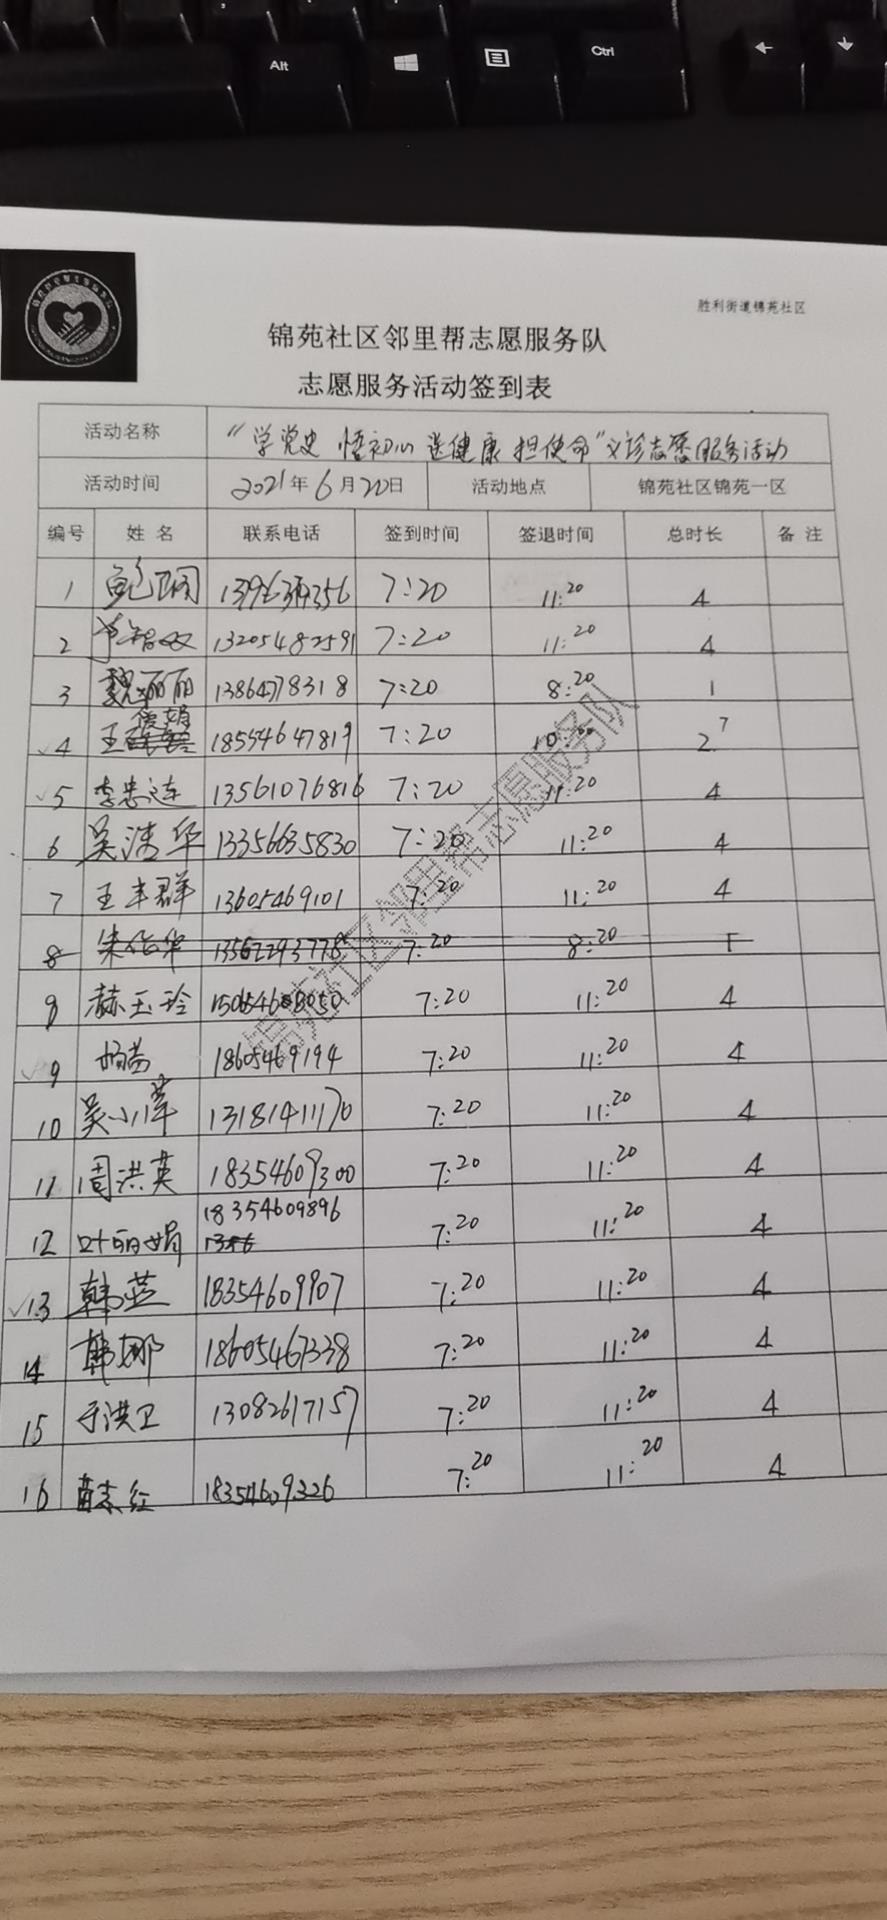 Alt
Ctrl
胜利街道锦苑社区
锦苑社区邻里帮志愿服务队
志愿服务活动签到表
活动名称 "学党史 悟初心 送健康 担使命"义诊志愿服务活动
活动时间 2021年6月20日 活动地点 锦苑社区锦苑一区
编号 姓名 联系电话 签到时间 签退时间 总时长 备注
1 7:20 11:20 4
2 13205482591 7:20 11:20 4
3 魏丽丽 13864778318 7:20 8:20 1
4 王俊娟 18554647819 7:20 10:00 2.7
5 李忠连 13561076816 7:20 11:20 4
6 吴清华 13356635830 7:20 11:20 4
7 王丰群 13605469101 7:20 11:20 4
8 朱作华 13562293778 7:20 8:20 1
8 赫玉玲 7:20 11:20 4
9 杨苗 18605469194 7:20 11:20 4
10 吴小萍 13181411170 7:20 11:20 4
11 周洪英 18354609300 7:20 11:20 4
12 叶丽娟 18354609896 7:20 11:20 4
13 韩蓝 18354609907 7:20 11:20 4
14 韩娜 18605467338 7:20 11:20 4
15 于洪卫 13082617157 7:20 11:20 4
16 苗志红 18354609326 7:20 11:20 4
锦苑社区邻里帮志愿服务队